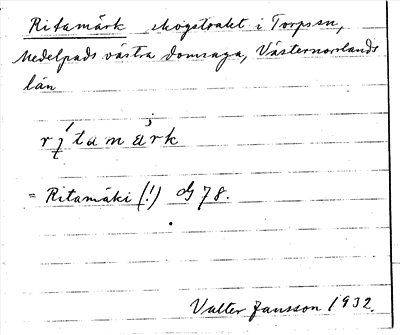 Ritamärk skogstrakt i Torps sn,
Medelpads västra domsaga, Västernorrlands
län
rítamärk
= Ritamäki (!) 78.
Valter Jansson 1932.